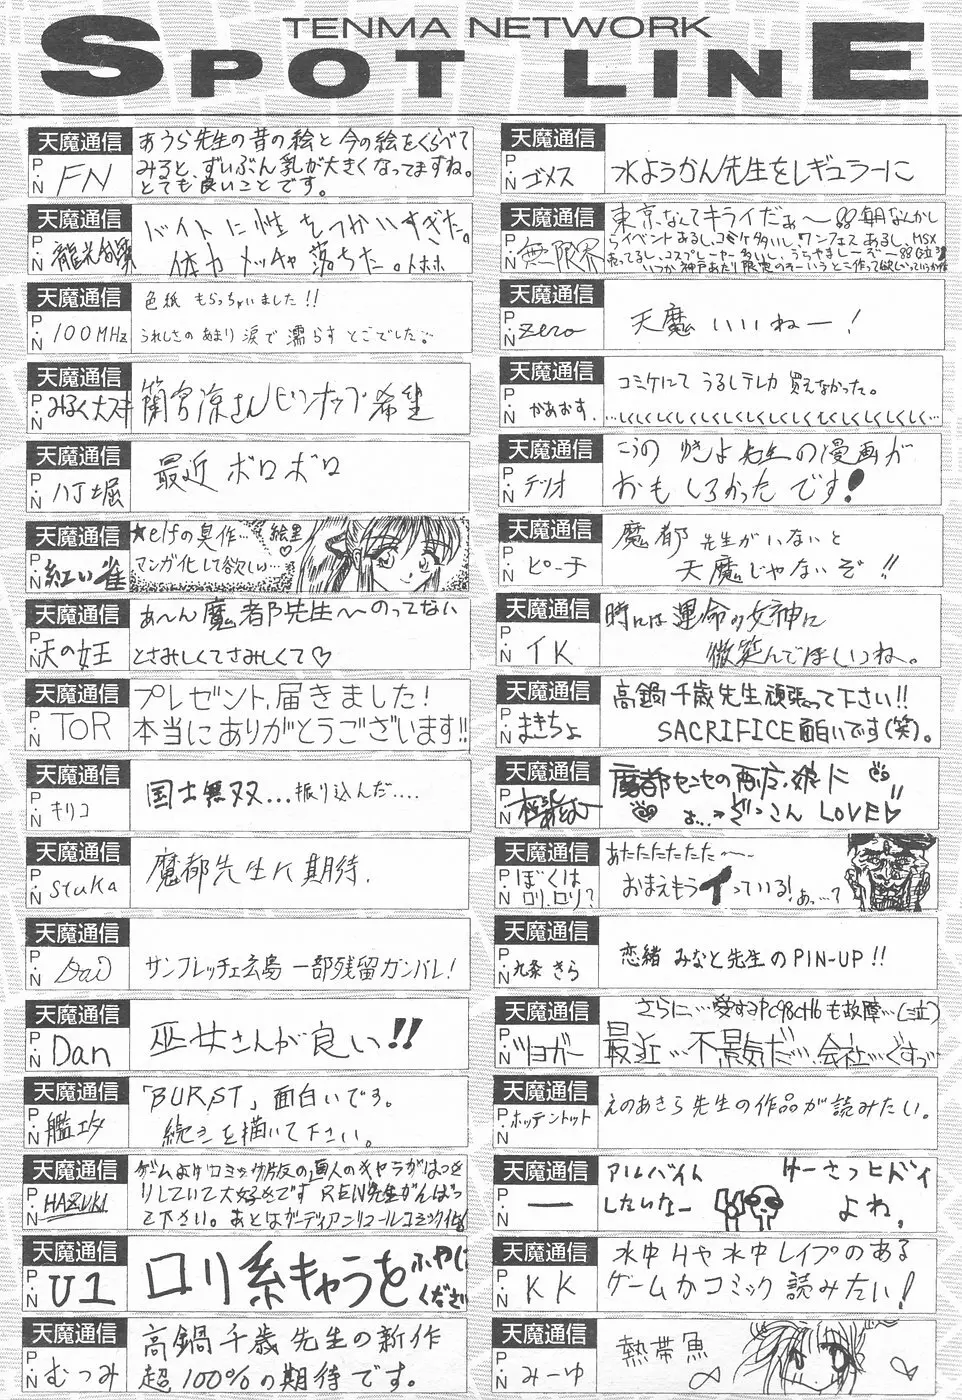 TENMA NETWORK
SPOT LINE
天魔通信
P.N FN
あうら先生の昔の絵と今の絵をくらべて
みると、ずいぶん乳が大きくなってますね。
とても良いことです。
天魔通信
P.N
バイトに性をつかいすぎた。
体力メッチャ落ちた。トホホ
天魔通信
P.N 100MHz
色紙もらっちゃいました!!
うれしさのあまり涙で濡らすとこでした
天魔通信
P.N みるく大スキ
蘭宮涼さんピンナップ希望
天魔通信
P.N 八丁堀
最近ボロボロ
天魔通信
P.N 紅い雀
★elfの臭作… 絵里♡
マンガ化して欲しい…
天魔通信
P.N 天の女王
あ〜ん魔都先生〜〜のってない
とさみしくてさみしくて♡
天魔通信
P.N TOR
プレゼント、届きました!
本当にありがとうございます!!
天魔通信
P.N キリコ
国士無双...振り込んだ....
天魔通信
P.N stuka
魔都先生に期待.
天魔通信
P.N DaiD
サンフレッチェ広島 一部残留ガンバレ!
天魔通信
P.N Dan
巫女さんが良い!!
天魔通信
P.N
「BURST」面白いです。
続きを描いて下さい。
天魔通信
P.N HAZUKI
ゲームよりコミック版反の直人のキャラがはっき
りしていて大好きです REN先生がんばっ
て下さい。あとはガーディアンリコールコミック化
天魔通信
P.N U1
ロリ系キャラをふやして
ください
天魔通信
P.N むつみ
高鍋千歳先生の新作
超100%の期待です。
天魔通信
P.N ゴメス
水ようかん先生をレギュラーに
天魔通信
P.N 無限界
東京なんてキライだぁ〜 毎月なんかし
らイベントあるし、コミケ多いし、ワンフェスあるし、MSX
売ってるし、コスプレーヤー多いし、うらやましーぞー
いつか神戸あたり限定のそーいうとこ作って欲しい
天魔通信
P.N zero
天魔いいねー!
天魔通信
P.N かあおす.
コミケにてうるしテレカ買えなかった。
…しくしくしくしくしくしくしくしくしくしくしく…
天魔通信
P.N テリオ
こうのゆきよ先生の漫画が
おもしろかったです!
天魔通信
P.N ピーチ
魔都先生がいないと
天魔じゃないぞ!!
天魔通信
P.N IK
時には運命の女神に
微笑んでほしいね。
天魔通信
P.N まきちょ
高鍋千歳先生頑張って下さい!!
SACRIFICE面白いです(笑)。
天魔通信
P.N
魔都センセの 娘に
ぞっこん LOVE♡
天魔通信
P.N ぼくはロリ.ロリ?
あたたたたたた〜〜
おまえもうイっている! あっ…て
天魔通信
P.N 九条きら
恋緒みなと先生のPIN-UP!!
天魔通信
P.N ツヨガー
さらに…愛するPC98CH6も故障…(泣)
最近…不景気だ…会社…ぐすっ
天魔通信
P.N ホッテントット
えのあきら先生の作品が読みたい。
天魔通信
P.N 一
アルバイト
したいなー
けーさつヒドイ
よね。
天魔通信
P.N KK
水中Hや水中レイプのある
ゲームかコミック読みたい!
天魔通信
P.N みーゆ
熱帯魚